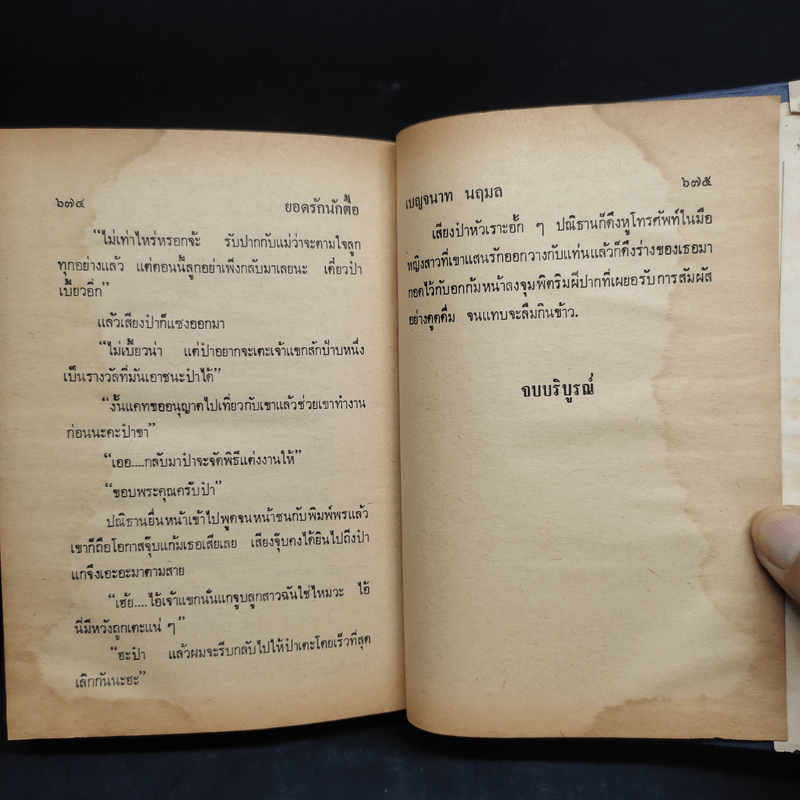 ๖๗๔ ยอดรักนักตื๊อ
“ไม่เท่าไหร่หรอกจ้ะ รับปากกับแม่ว่าจะตามใจลูก
ทุกอย่างแล้ว แต่ตอนนี้ลูกอย่าเพิ่งกลับมาเลยนะ เดี๋ยวป๋า
เบี้ยวอีก”
แล้วเสียงป๋าก็แซงออกมา
“ไม่เบี้ยวน่า แต่ป๋าอยากจะเตะเจ้าแขกสักป้าบหนึ่ง
เป็นรางวัลที่มันเอาชนะป๋าได้”
“งั้นแคทขออนุญาตไปเที่ยวกับเขาแล้วช่วยเขาทำงาน
ก่อนนะคะป๋าขา”
“เออ....กลับมาป๋าจะจัดพิธีแต่งงานให้”
“ขอบพระคุณครับป๋า”
ปณิธานยื่นหน้าเข้าไปพูดจนหน้าชนกับพิมพ์พรแล้ว
เขาก็ถือโอกาสจุ๊บแก้มเธอเสียเลย เสียงจุ๊บคงได้ยินไปถึงป๋า
แกจึงเอะอะมาตามสาย
“เฮ้ย....ไอ้เจ้าแขกนั่นแกจูบลูกสาวฉันใช่ไหมวะ ไอ้
นี่มีหวังถูกเตะแน่ ๆ”
“ฮะป๋า แล้วผมจะรีบกลับไปให้ป๋าเตะโดยเร็วที่สุด
เลิกกันนะฮะ”
เบญจนาท นฤมล ๖๗๕
เสียงป๋าหัวเราะอั้ก ๆ ปณิธานก็ดึงหูโทรศัพท์ในมือ
หญิงสาวที่เขาแสนรักออกวางกับแท่นแล้วก็ดึงร่างของเธอมา
กอดไว้กับอกก้มหน้าลงจุมพิตริมฝีปากที่เผยอรับการสัมผัส
อย่างดูดดื่ม จนแทบจะลืมกินข้าว.
จบบริบูรณ์